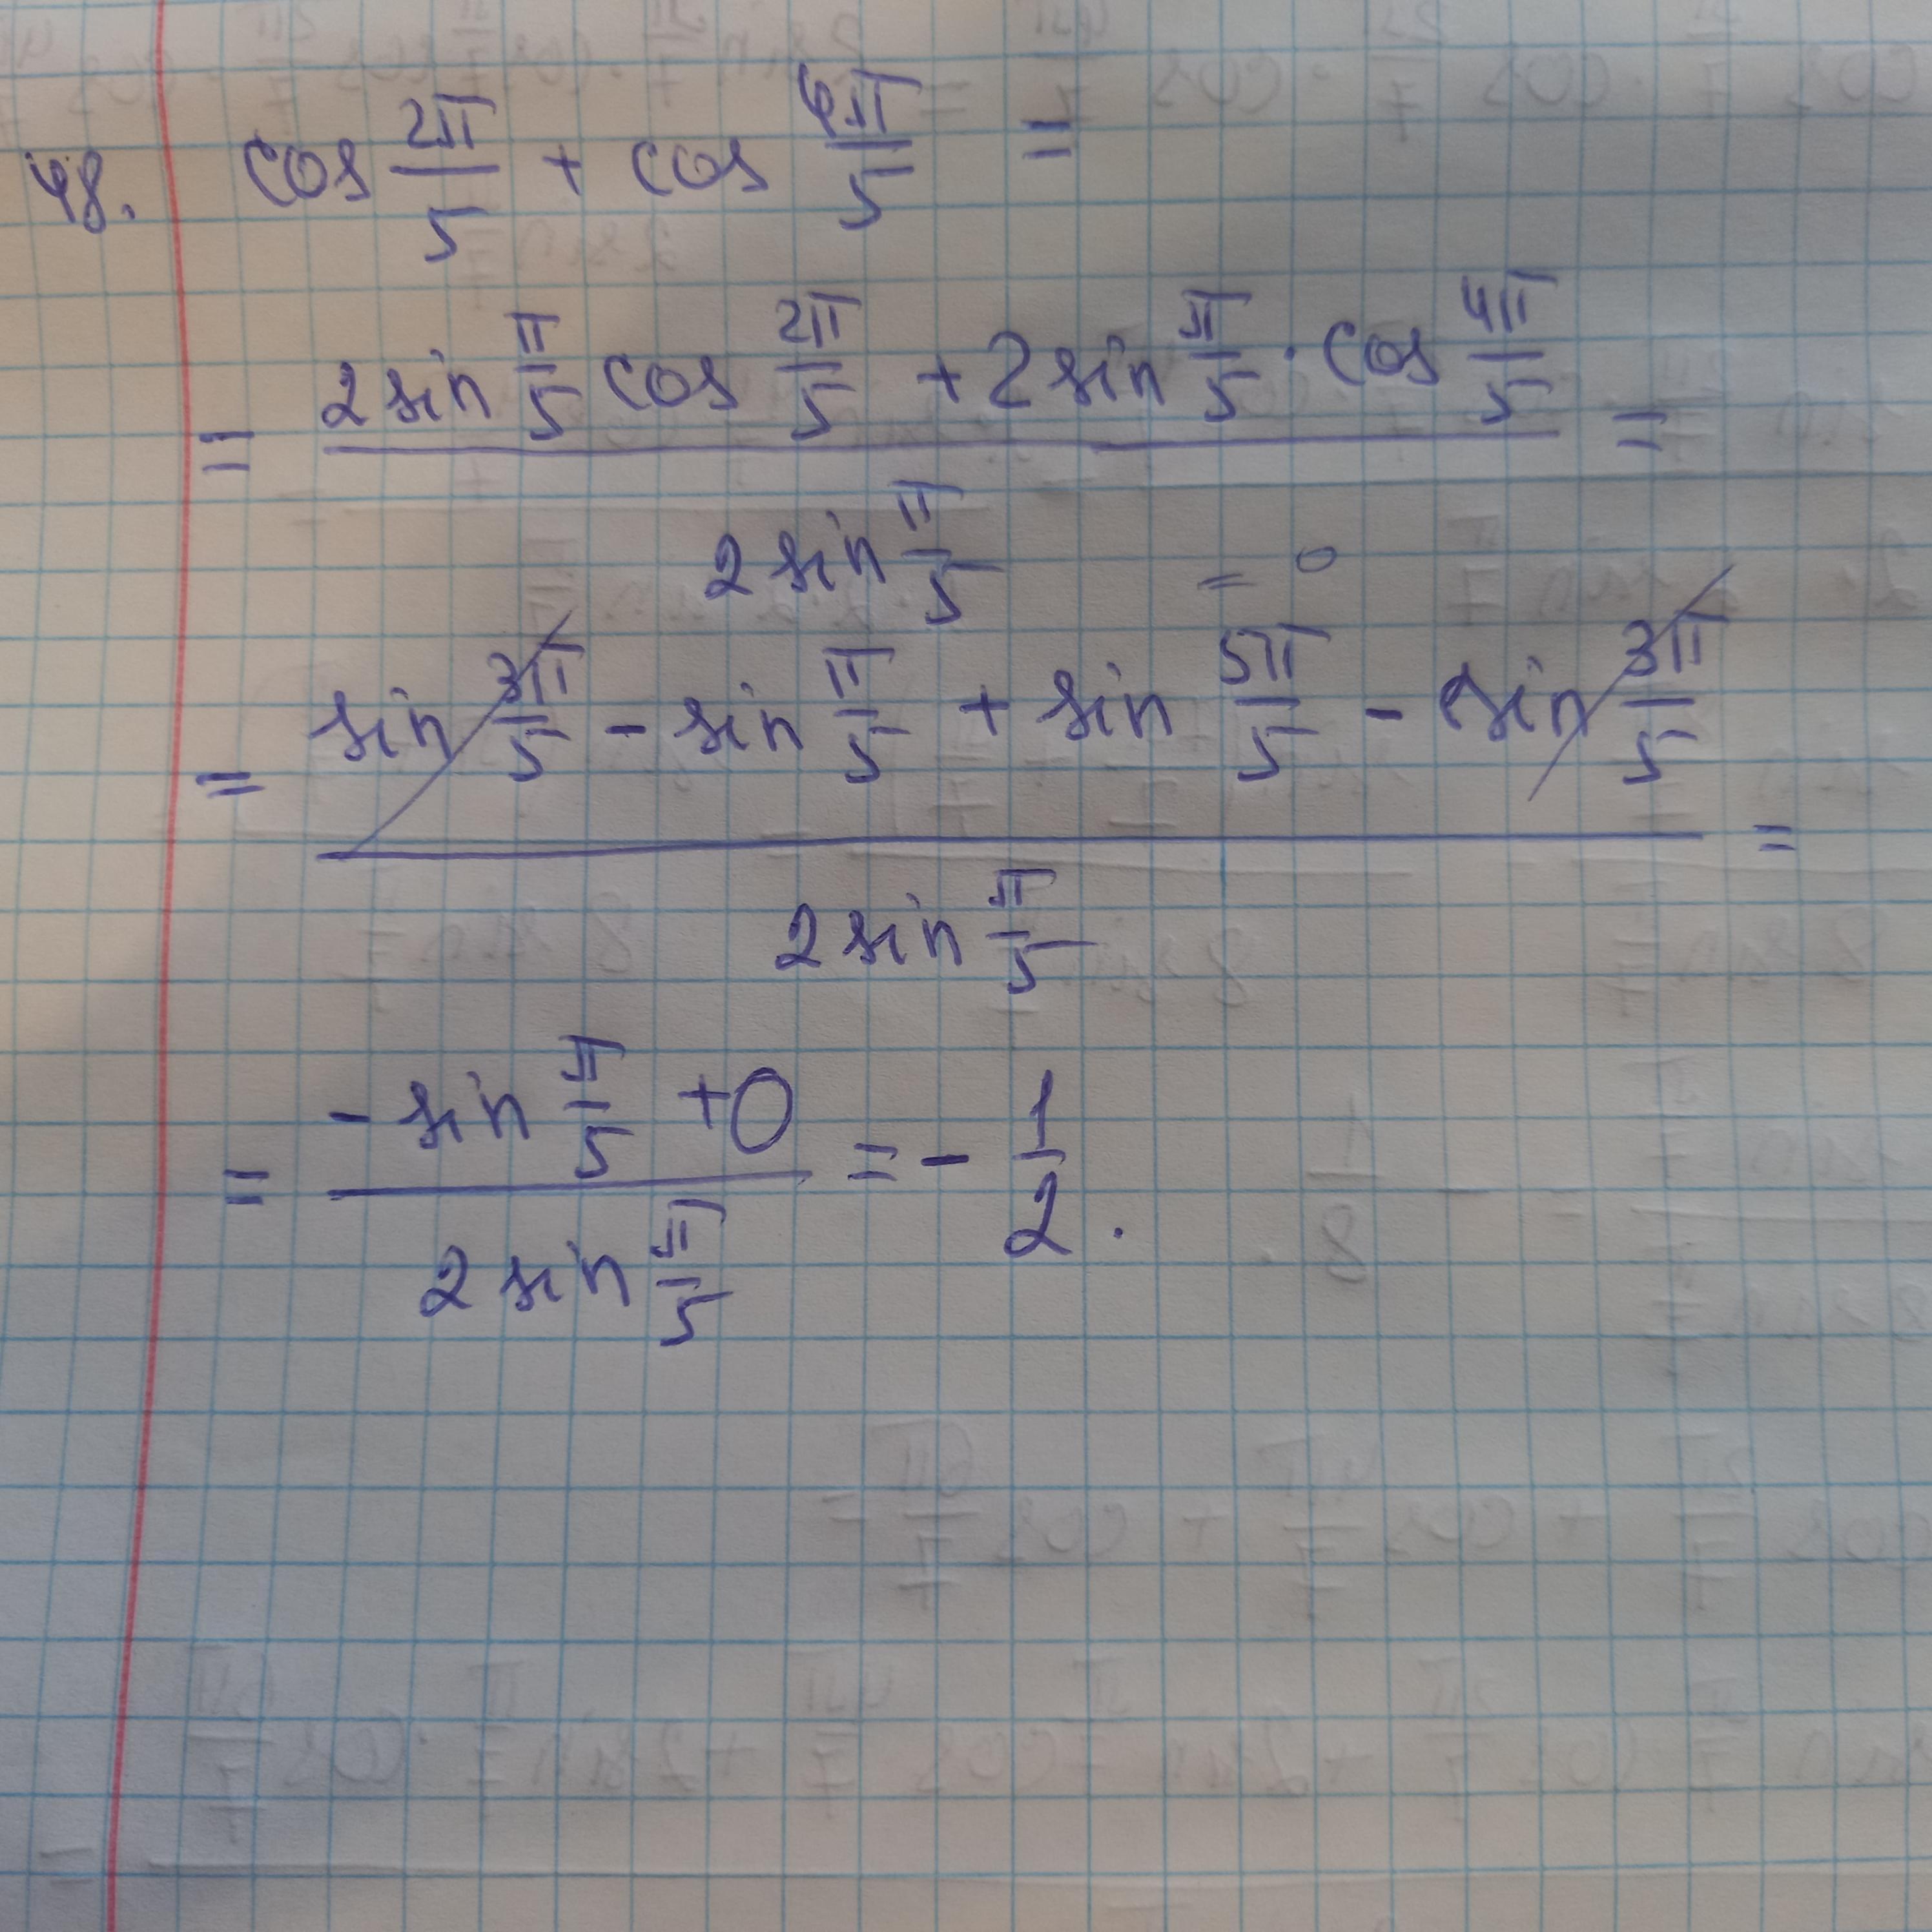 48. cos 2π/5 + cos 4π/5 =
= (2 sin π/5 cos 2π/5 + 2 sin π/5 · cos 4π/5) / (2 sin π/5) =
= 0
= (sin 3π/5 - sin π/5 + sin 5π/5 - sin 3π/5) / (2 sin π/5) =
= (- sin π/5 + 0) / (2 sin π/5) = - 1/2 .